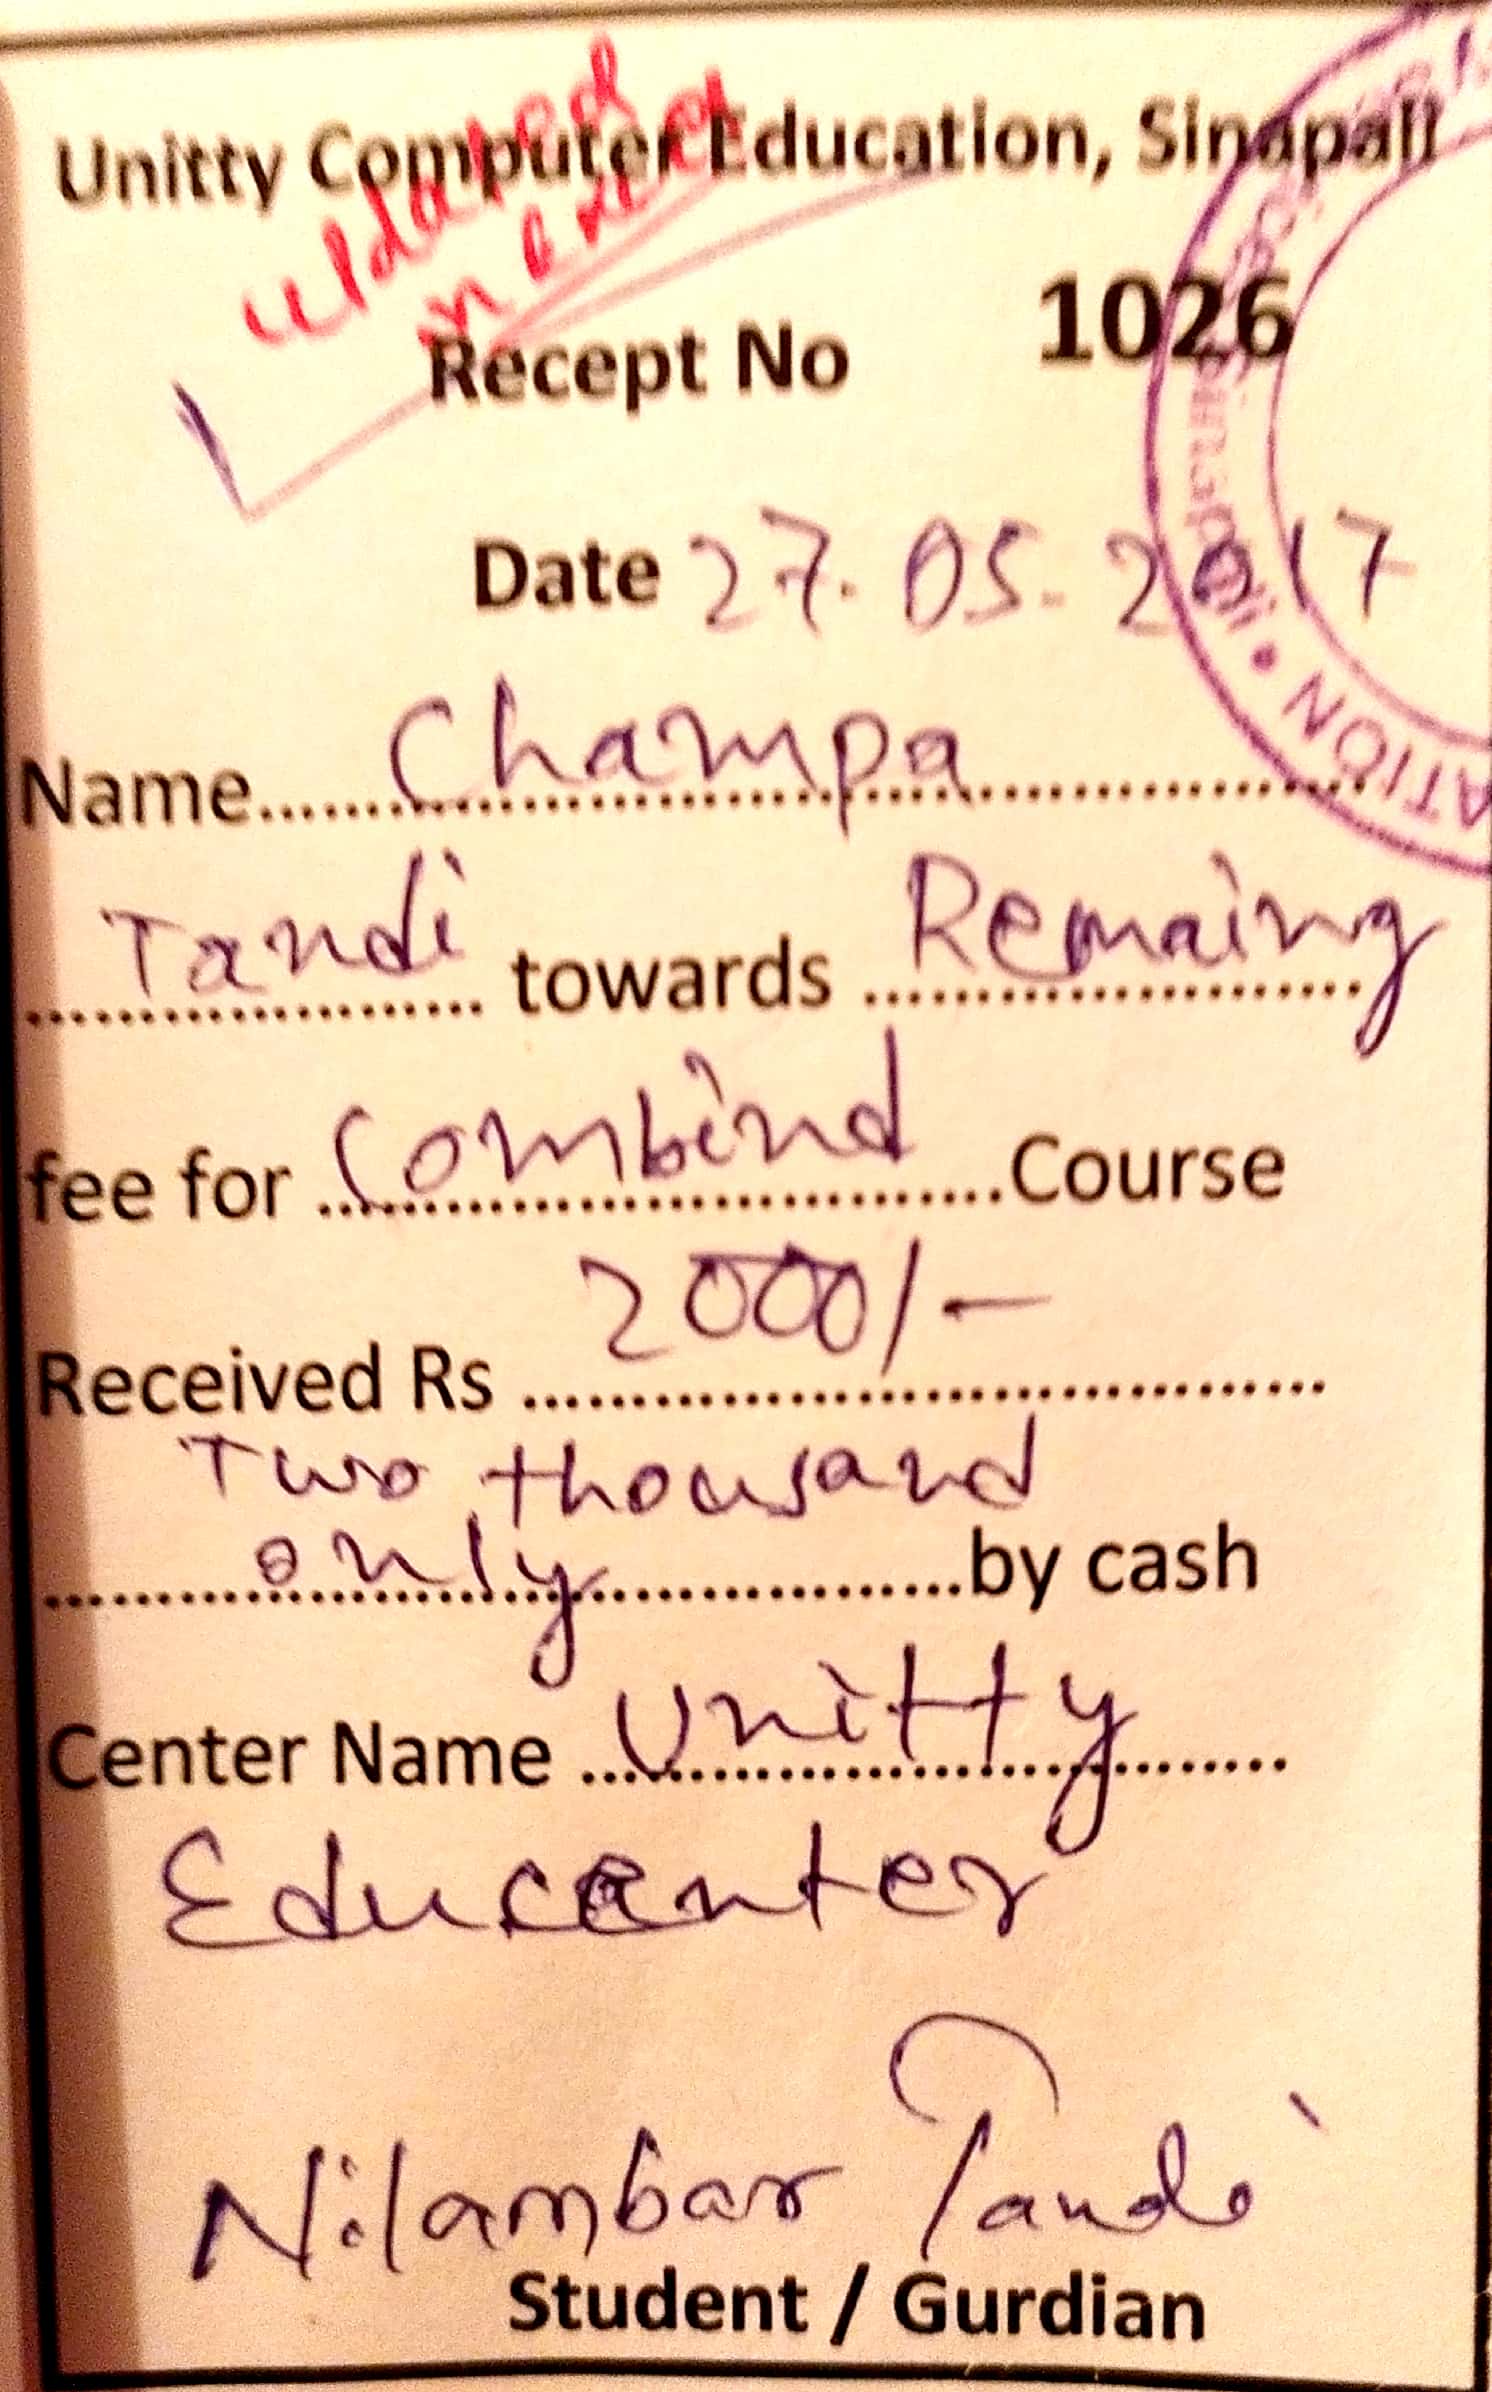 Unitty Computer Education, Sinapali
in excel
Recept No 1026
Date 27.05.2017
Name...... Champa
Tandi towards Remaing
fee for Combind Course
Received Rs 2000/-
Two thousand
only by cash
Center Name Unitty
Educenter
Nilambar Tandi
Student / Gurdian
ATION • Sinapali